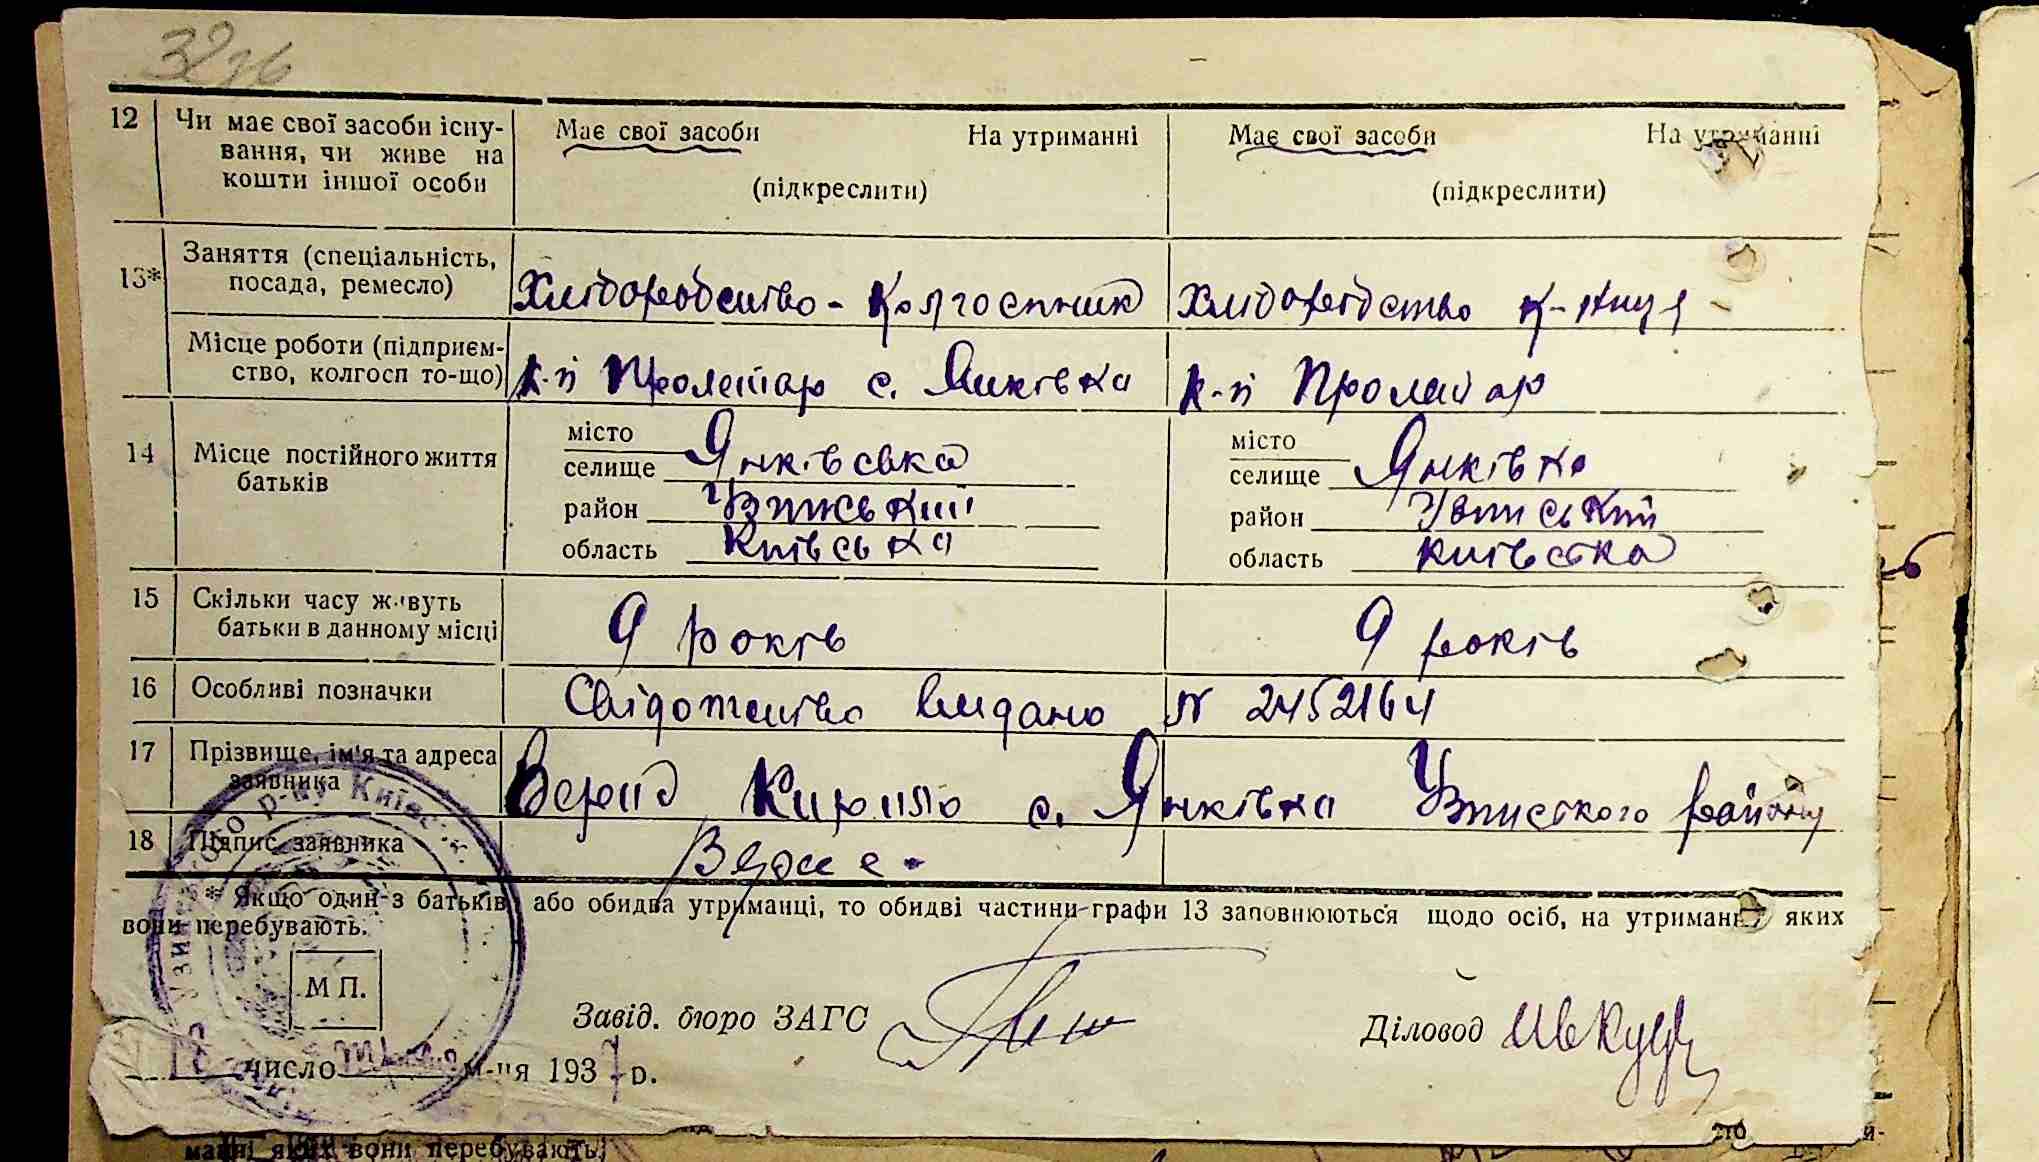 32зв
12 Чи має свої засоби існу- Має свої засоби На утриманні Має свої засоби На утриманні
вання, чи живе на
кошти іншої особи (підкреслити) (підкреслити)
13* Заняття (спеціальність,
посада, ремесло) Хліборобство - Колгоспник Хліборобство к-ниця
Місце роботи (підприєм-
ство, колгосп то-що) к-п Пролетар с. Янківка к-п Пролетар
14 Місце постійного життя
батьків
місто
селище Янківська
район Узинський
область Київська
місто
селище Янківка
район Узинський
область Київська
15 Скільки часу живуть
батьки в данному місці 9 років 9 років
16 Особливі позначки Свідотство видано N 2452164
17 Прізвище, ім'я та адреса
заявника Кирило с. Янківка Узинського району
18 Підпис заявника
* Якщо один з батьків, або обидва утриманці, то обидві частини графи 13 заповнюються щодо осіб, на утриманні яких
вони перебувають.
М П.
Завід. бюро ЗАГС Діловод
число м-ця 1937 р.
манні яких вони перебувають.